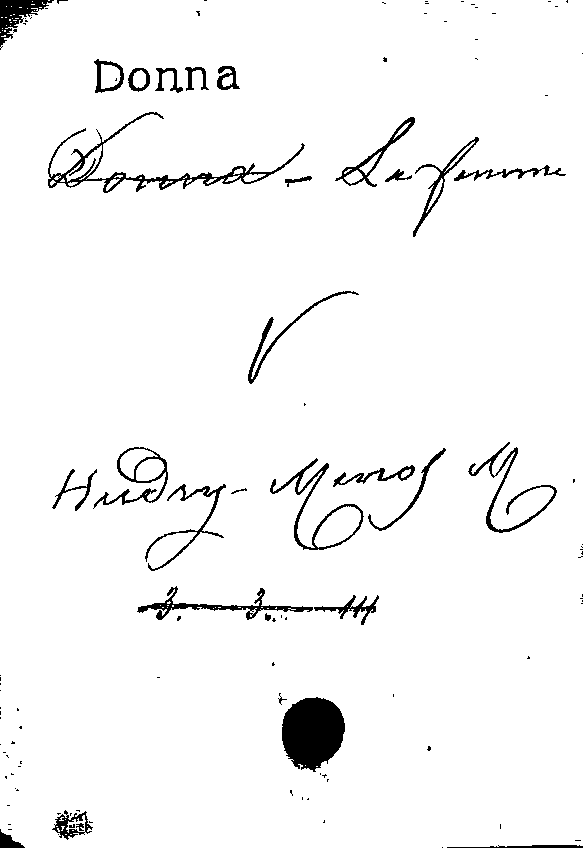 Donna
Donna - La femme
V
Hudry-Menos M
3. 3. 111